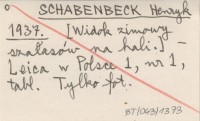 SCHABENBECK Henryk
1937. [Widok zimowy
szałasów na hali.] –
Leica w Polsce 1, nr 1,
tabl. Tylko fot.
BT/043/1373